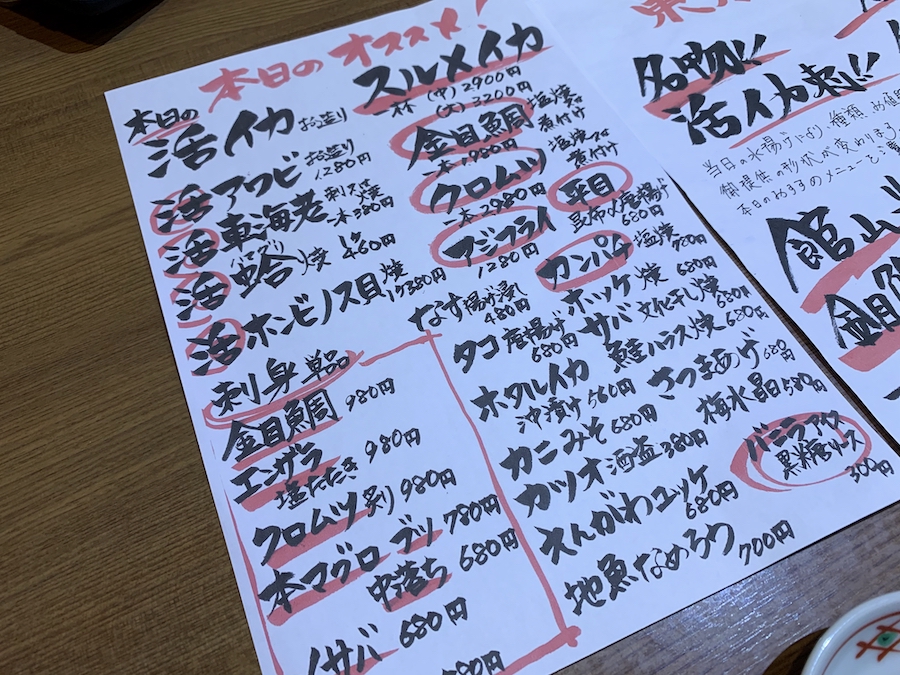 本日のオススメ!
本日の
活イカ お造り
スルメイカ
一杯 (中) 2900円
(大) 3200円
活アワビ お造り
1280円
活車海老 刺又は焼
一本380円
活蛤焼 1ケ
ハマグリ
460円
活ホンビノス貝焼
1ケ380円
金目鯛 塩焼or
煮付け
一本1980円
クロムツ 塩焼or
煮付け
一本2980円
平目
昆布〆唐揚げ
680円
アジフライ
1280円
カンパチ 塩焼
780円
なす揚げ浸し
480円
ホッケ焼 680円
タコ唐揚げ
680円
サバ文化干し焼
680円
ホタルイカ
沖漬け 560円
鮭ハラス焼 680円
カニみそ 680円
さつまあげ 680円
カツオ酒盗 380円
梅水晶 580円
えんがわユッケ
680円
バニラアイス
黒糖ソース
300円
地魚なめろう 700円
刺身 単品
金目鯛 980円
エンザラ
塩たたき 980円
クロムツ炙り 980円
本マグロ ブツ 780円
中落ち 680円
イサバ 680円
680円
名物!!
活イカ刺!!
当日の水揚げにより、種類、お値段
御提供の形状が変わりま
本日のおすすめメニューをご
館山
金目